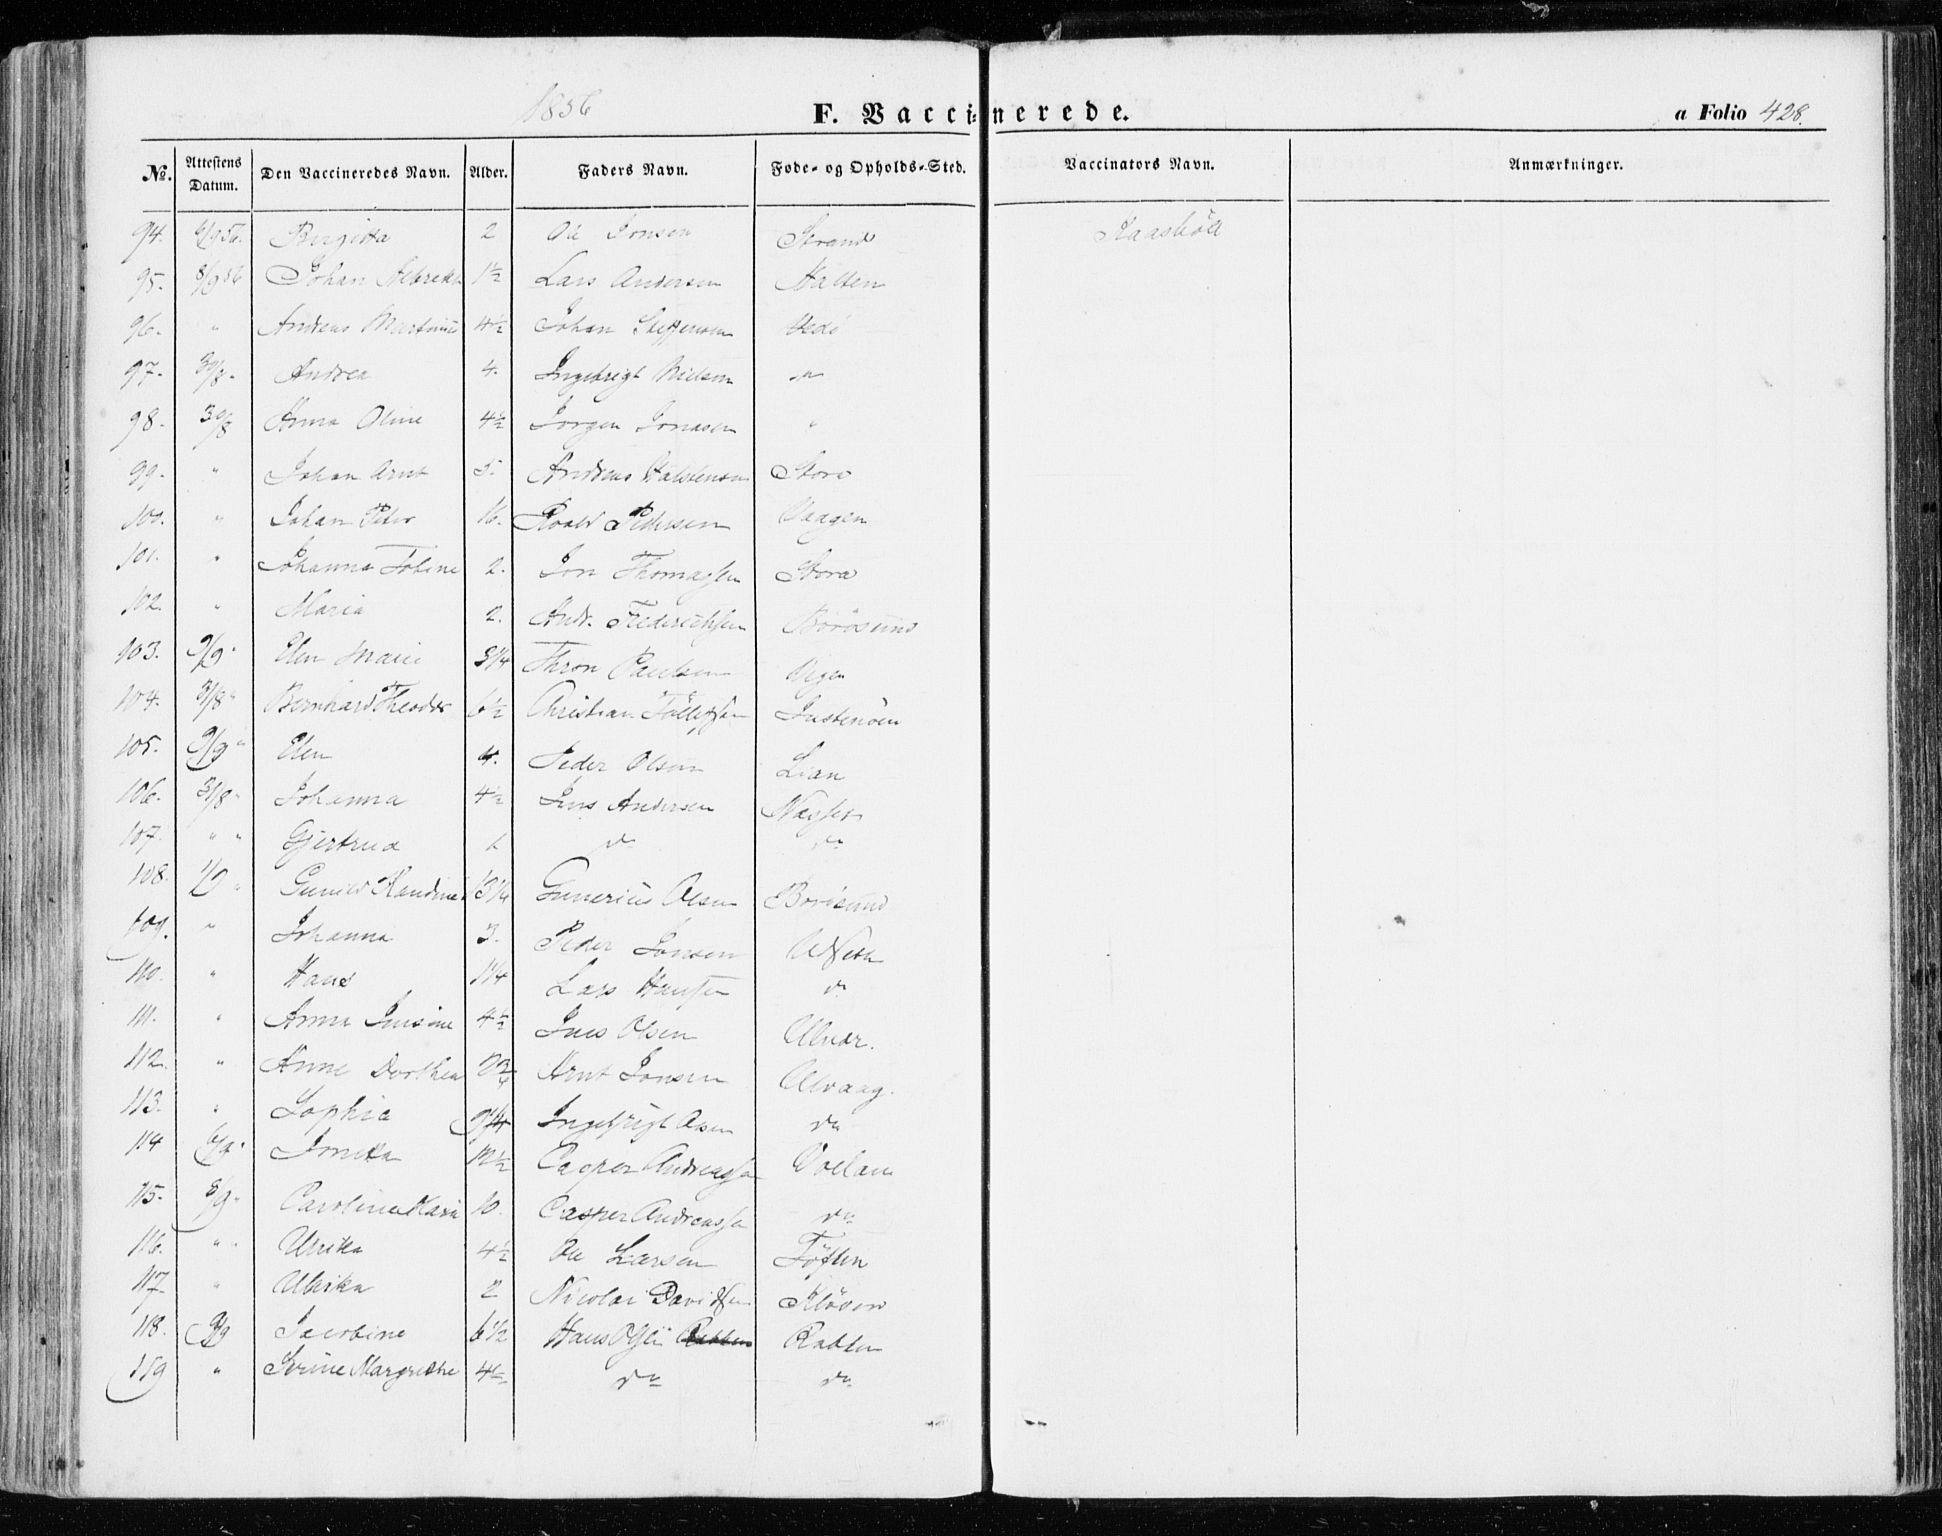 1856
F. Vaccinerede.
a Folio 428.
№. Attestens Datum. Den Vaccineredes Navn. Alder. Faders Navn. Føde- og Opholds-Sted. Vaccinators Navn. Anmærkninger.
94. 6/9 56. Birgitta 2 Ole Jonsen Strand
95. 8/9 56 Johan 1½ Lars Andersen Halten
96. " Andreas Martinus 4½ Johan Steffensen
97. Andrea 4. Ingebrigt Nielsen "
98. 30/8 Anna Oline 4½ Jørgen Jonasen "
99. " Johan Arnt 5. Andreas Halstensen Storø
100. " Johan Peter 16. Roald Pedersen Vaagen
101. " Johanna Tobine 2. Jon Thomassen Storø
102. " Maria 2. Andr. Frederichsen Borøsund
103. 9/9 " Elen Marie 3¼ Thron Paulsen
104. 31/8 " Bernhard Theodor 6½ Christian Tøllefsen
105. 9/9 " Elen 4. Peder Olsen Lian
106. 31/8 " Johanna 4½ Jens Andersen Næsset
107. " " Gjertrud 1 do do
108. " Gunild 13¼ Gunerius Olsen Borøsund
109. " Johanna 3. Peder Jonsen
110. " Hans 1¼ Lars Hansen do
111. " Anna Jensine 4½ Jens Olsen Ulvær.
112. " Anne Dorthea 2¾ Arnt Jonsen Ulvaag.
113. " Sophia 9¼ Ingebrigt Olsen do
114 6/9 " Jonetta 12½ Casper Andreassen
115. 8/9 " Caroline Maria 10. Casper Andreassen do
116. " " Ulrika 4½ Ole Larsen Tøften
117. " Ulrika 2 Nicolai Davidsen Kløven
118. 9/9 Jacobine 6½ Hans Rabben
119 " Serine Margrethe 4½ do do